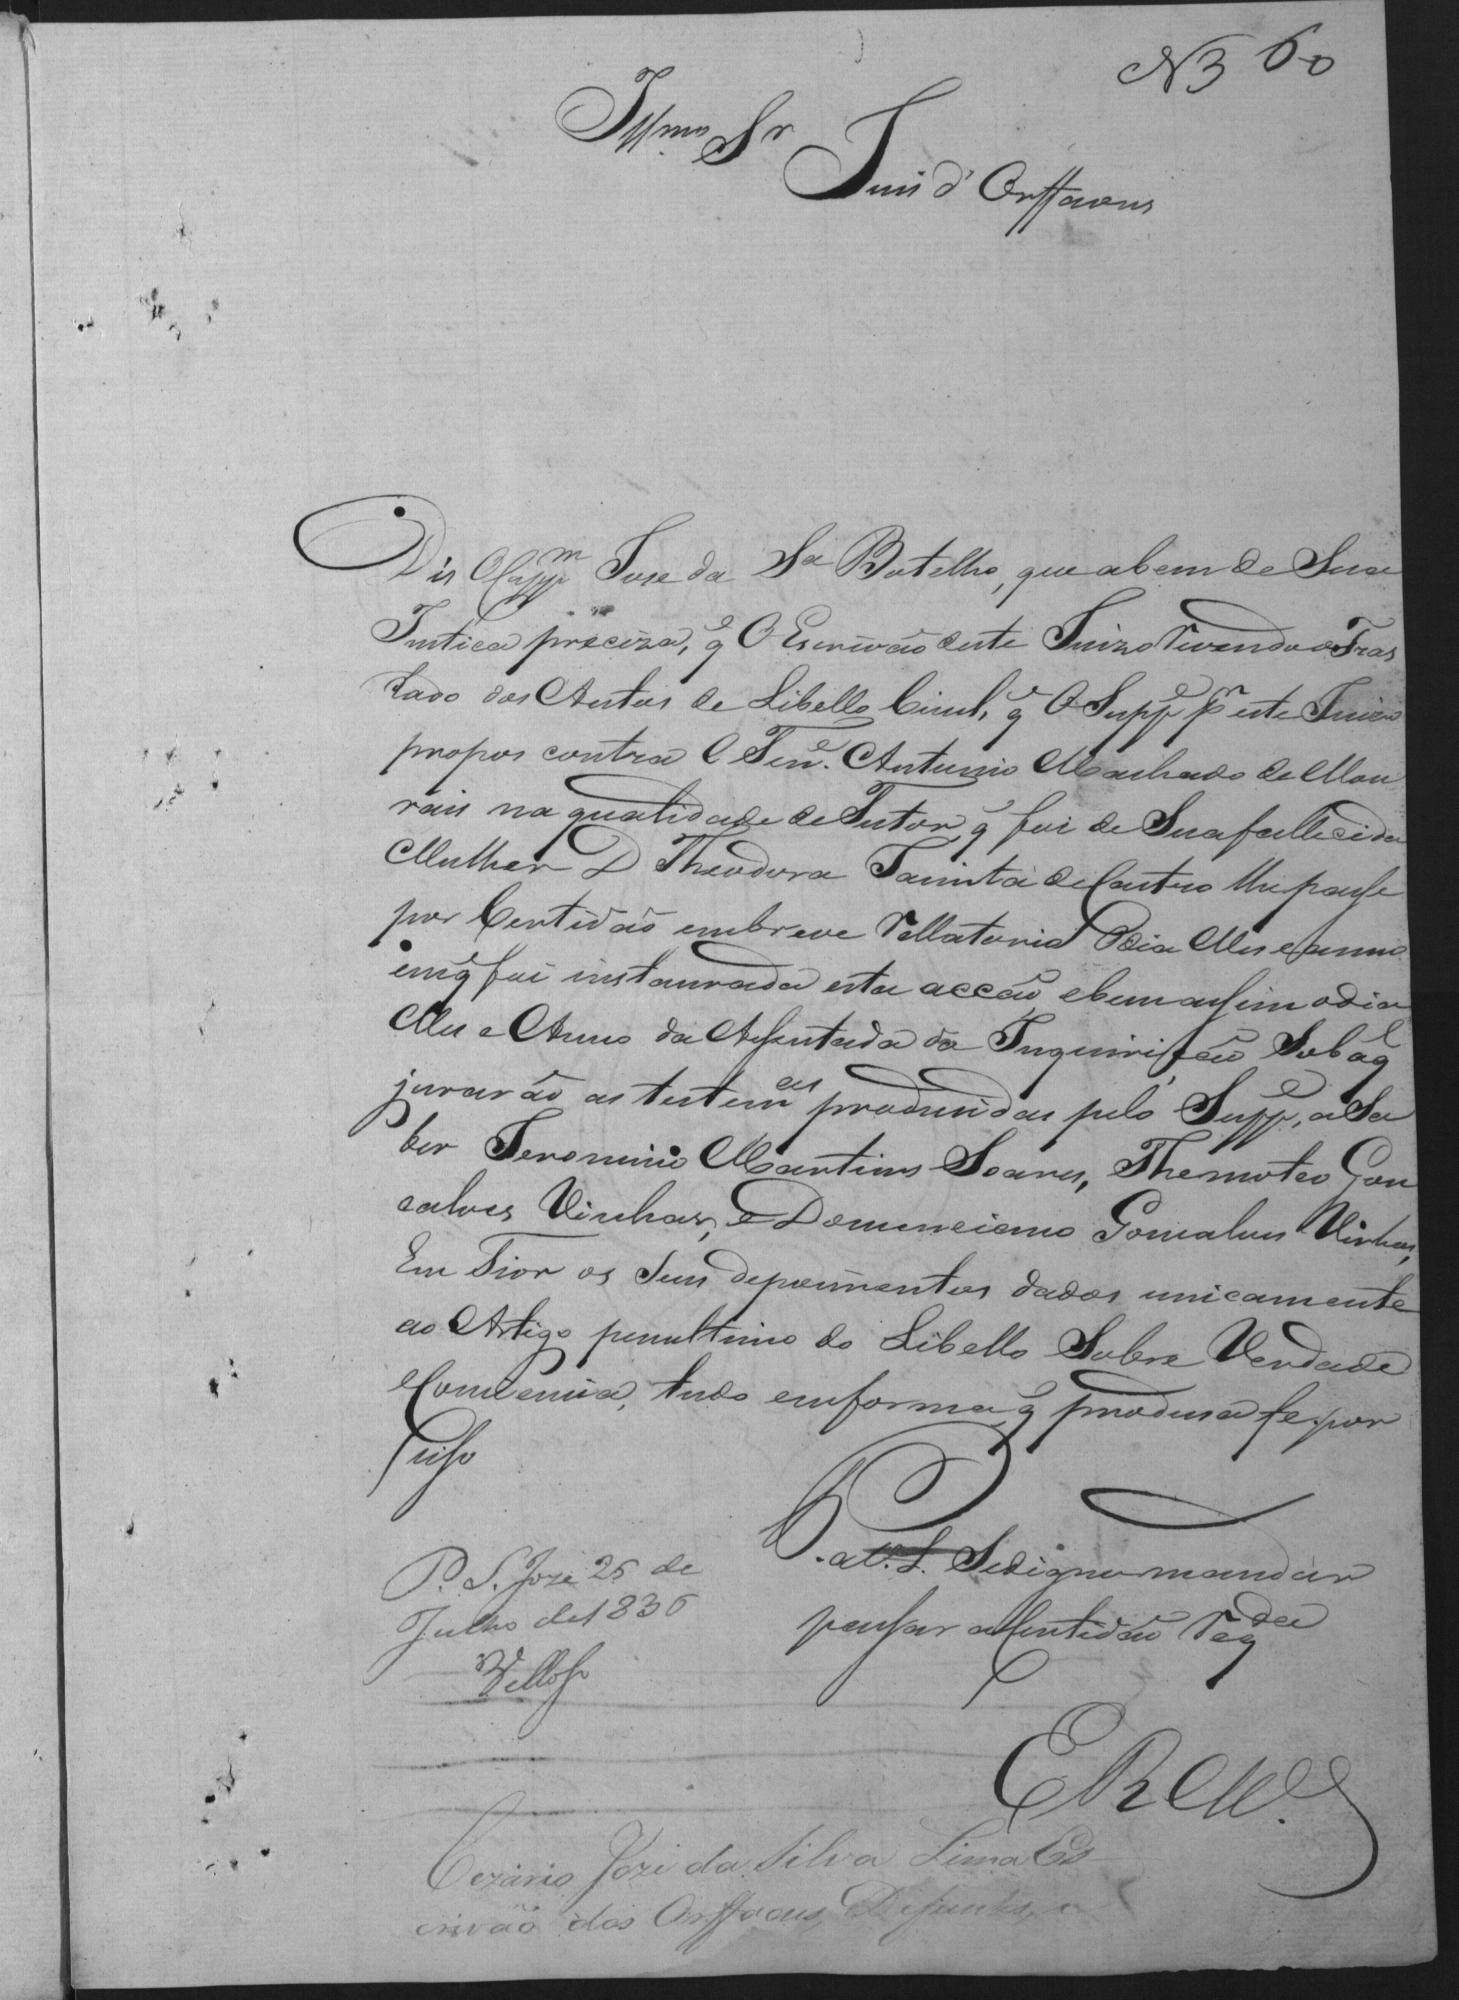 N3 60
Illmo Sr
Juis d'Orffaons
Dis O Cappm Jose da Sa Botelho, que abem de Sua
Justica preciza, q̃ O Escrivão deste Juizo Revendo o Tras
lado dos Autos de Libello Civel, q̃ O Suppe pr este Juizo
propos contra O Tene. Antonio Machado de Mou
rais na qualidade de Tutor q̃ foi de Sua fallecida
Mulher D Theodora Jacinta de Castro lhe passe
por Certidão embreve Rellatorio Odia Mes e anno
emq̃ foi instaurada esta accão, ebem assim odia
Mes e Anno da Assentada da Inquirição Sobaql
jurarão as testemas produsidas pelo Suppe, a Sa
ber Jeronimo Martins Soares, Themoteo Gon
calves Vinhas, e Domenciano Gomcalves Vinhas,
Em Tior os seus depoimentos dados unicamente
ao Artigo penultimo do Libello Sobre Verdade
e Comcencia, tudo emforma q̃ produsa fe. por
tisso
P. a V. S. Sedigne mandar
passar a Certidão Reqda
P. S. Jozé 26 de
Julho de 1836
Velloso
E R Mce.
Cezario Joze da Silva Lima Es
crivão dos Orffaons, Defuntos,